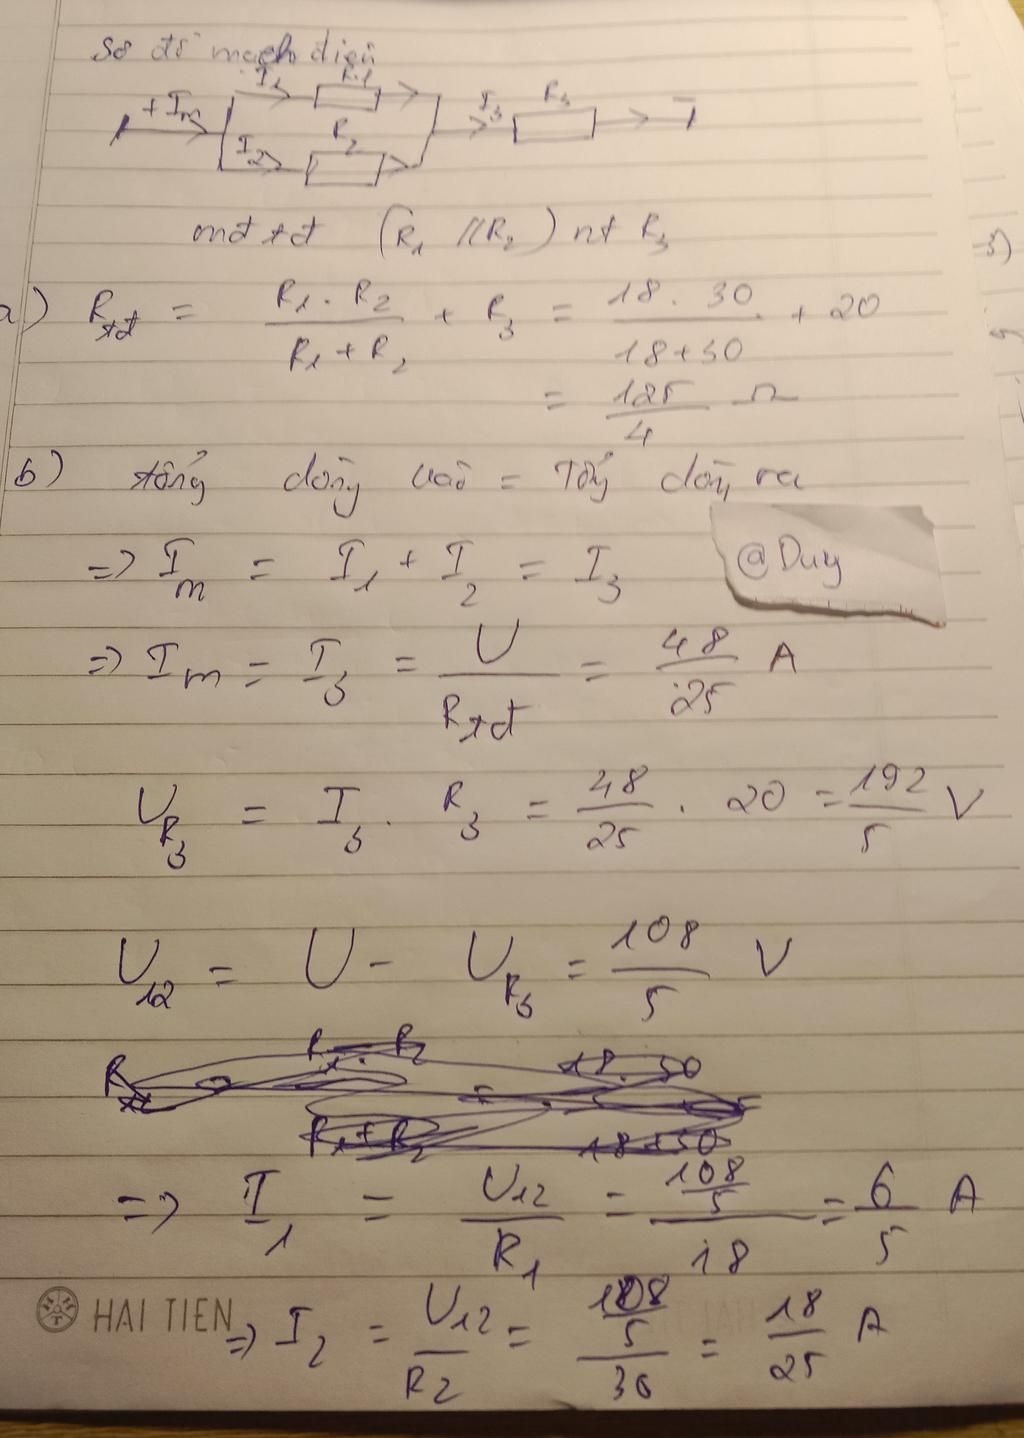 Sơ đồ mạch điện
I1 R1
+ Im I3 R3 -
I2 R2
mđtđ (R1 // R2) nt R3
a) Rtđ = R1 . R2 / R1 + R2 + R3 = 18 . 30 / 18 + 30 + 20
= 125 / 4 Ω
b) tổng dòng vào = Tổng dòng ra
@Duy
=> Im = I1 + I2 = I3
=> Im = I3 = U / Rtđ = 48 / 25 A
UR3 = I3 . R3 = 48 / 25 . 20 = 192 / 5 V
U12 = U - UR3 = 108 / 5 V
=> I1 = U12 / R1 = 108/5 / 18 = 6 / 5 A
HAI TIEN
=> I2 = U12 / R2 = 108/5 / 30 = 18 / 25 A